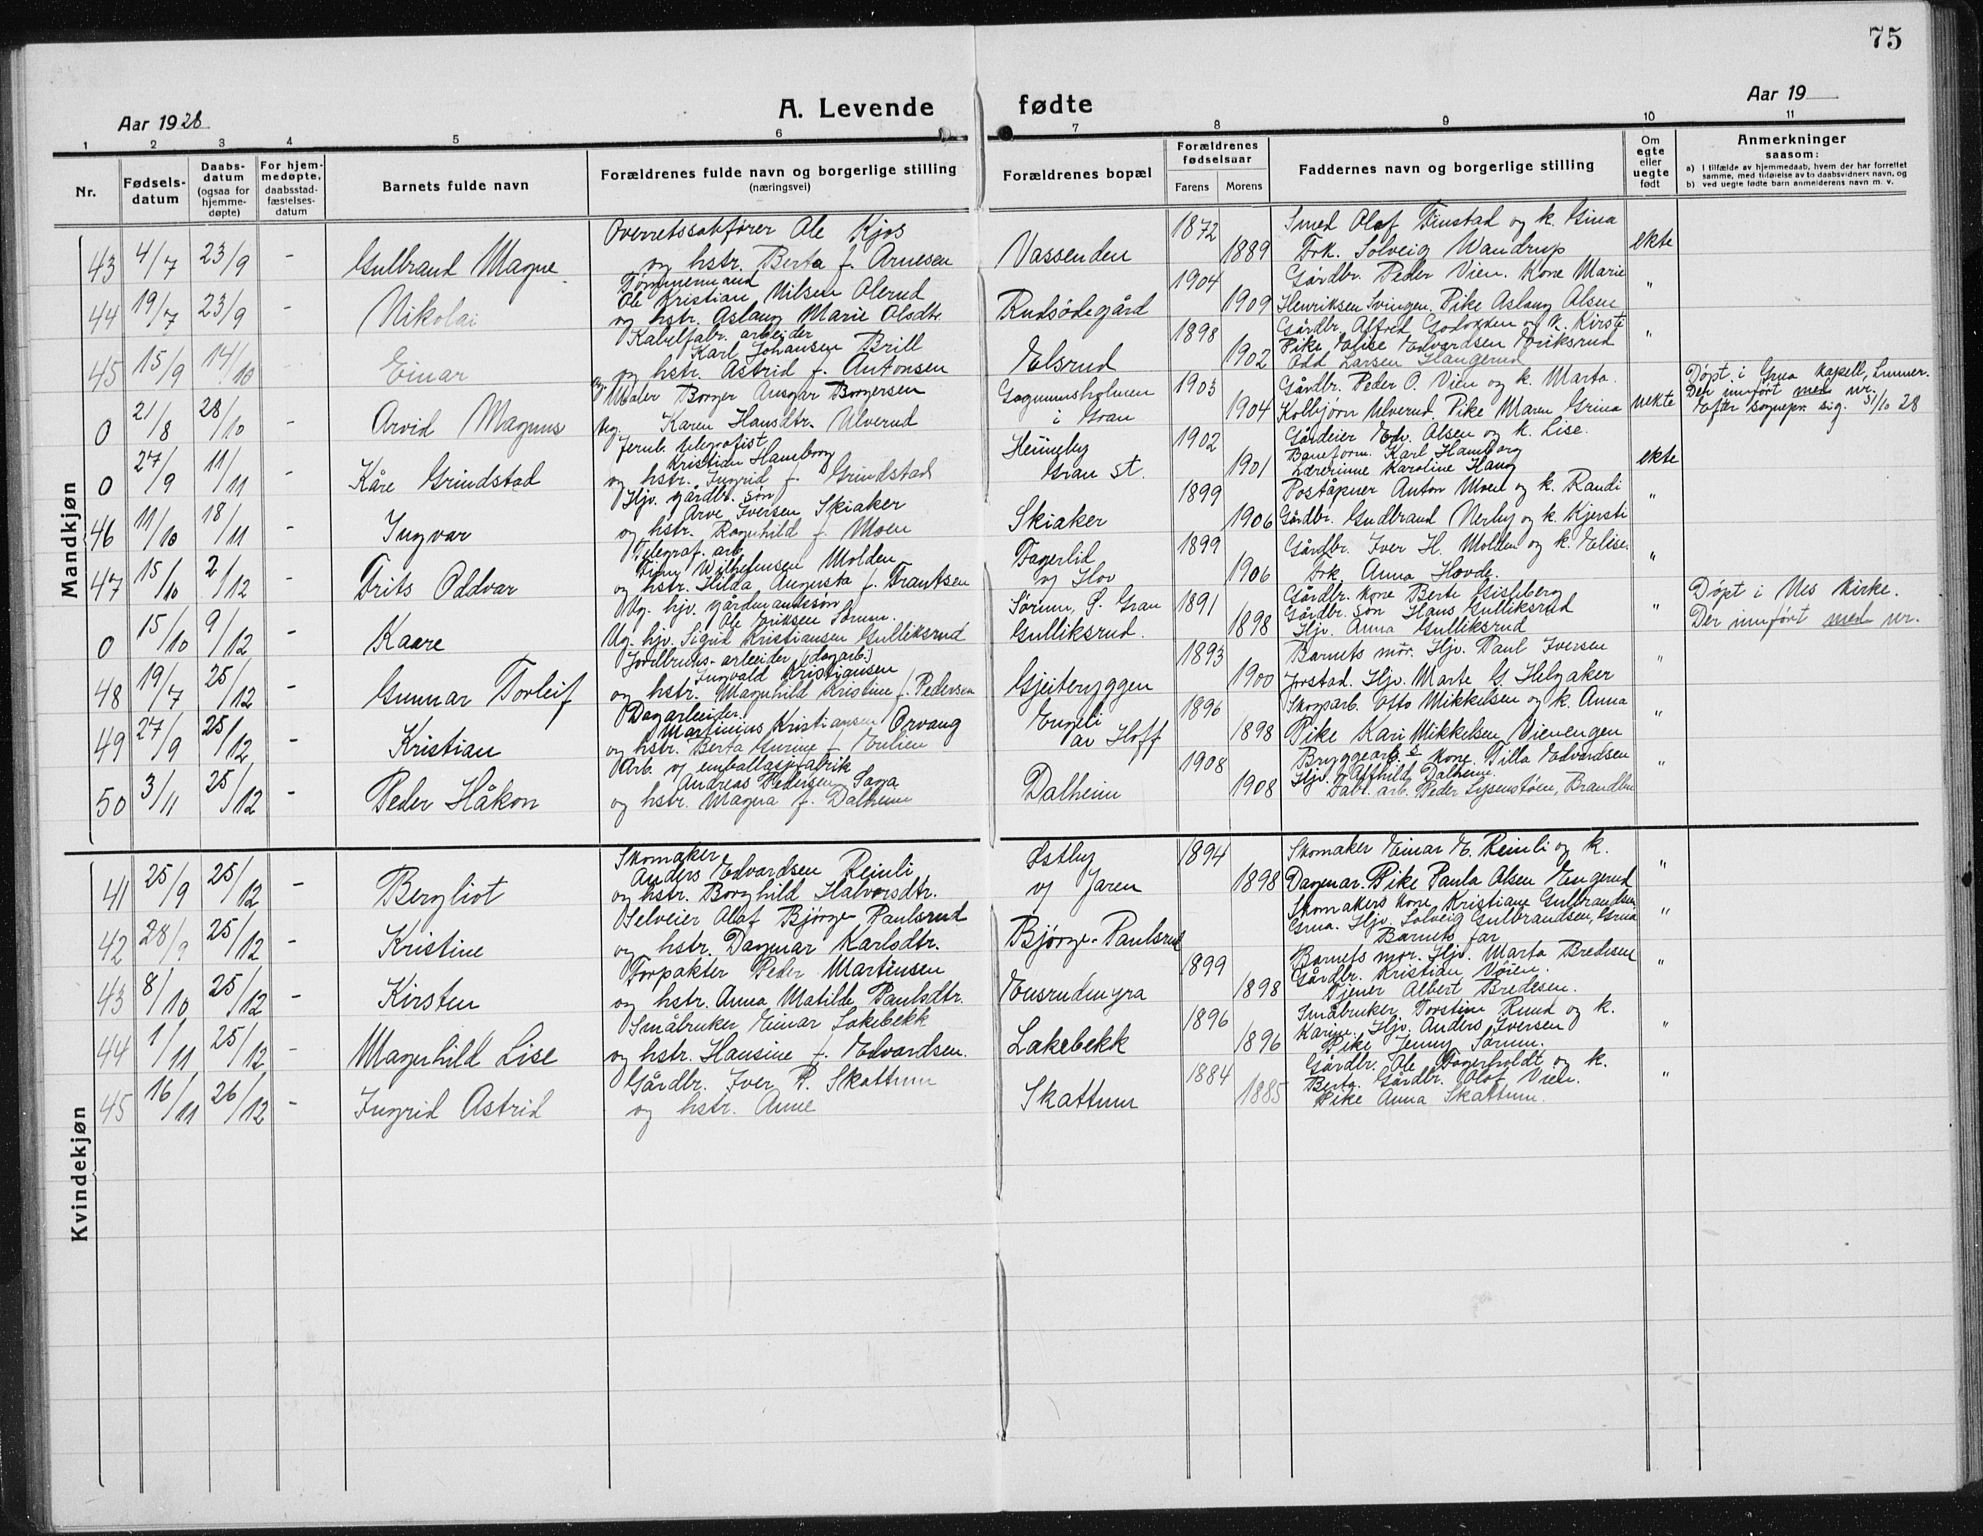 75
Aar 1928
A. Levende fødte
Aar 19
1 2 3 4 5 6 7 8 9 10 11
Nr.
Fødsels-datum
Daabs-datum (ogsaa for hjemme-døpte)
For hjem-medøpte, daabsstad-fæstelses-datum
Barnets fulde navn
Forældrenes fulde navn og borgerlige stilling (næringsvei)
Forældrenes bopæl
Forældrenes fødselsaar
Farens Morens
Faddernes navn og borgerlige stilling
Om egte eller uegte født
Anmerkninger saasom:
a) I tilfælde av hjemmedaab, hvem der har forrettet samme, med tilføielse av to daabsvidners navn, og
b) ved uegte fødte barn anmelderens navn m. v.
Mandkjøn
43 4/7 23/9 - Gulbrand Magne
Overretssakfører Ole Kjos
og hstr. Berta f. Arnesen
Vassenden 1872 1889
Smed Olaf Finstad og k. Gina
Frk. Solveig Wandrup
ekte
44 19/7 23/9 - Nikolai
Tømmermand
Ole Kristian Nilsen Olerud
og hstr. Aslaug Marie Olsdtr.
Rudsødegård 1904 1909
Gårdbr. Peder Vien. Kone Marie
Henriksen Svingen, Pike Aslaug Olsen
"
45 15/9 14/10 - Einar
Kabelfabr. arbeider
Karl Johansen Brill
og hstr. Astrid f. Antonsen
Elsrud 1898 1902
Gårdbr. Alfred k. Kirsti
Pike Elise Edvardsen Eriksrud
Odd Larsen Haugerud
"
0 21/8 28/10 - Arvid Magnus
Ug. Maler Borger Ansgar Borgersen
Ug. Karen Hansdtr. Ulverud
i Gran 1903 1904
Gårdbr. Peder O. Vien og k. Marta.
Kolbjørn Ulverud, Pike Maren Grina
uekte
Døpt i Grua Kapell, Lunner.
Der innført med nr.
Efter sogнepr. sig. 31/10 28
0 27/9 11/11 - Kåre Grindstad
Jernb. telegrafist
Kristian Hamborg
og hstr. Ingrid f. Grindstad
Heimeby
Gran st. 1902 1901
Gårdeier Edv. Olsen og k. Lise.
Baneform. Karl Hamborg
Lærerinne Karoline Haug
ekte
46 11/10 18/11 - Ingvar
Hjv. gårdbr. søn
Arve Iversen Skiaker
og hstr. Ragnhild f. Moen
Skiaker 1899 1906
Poståpner Anton Moen og k. Randi
Gårdbr. Gudbrand Nerby og k. Kjersti
"
47 15/10 2/12 - Frits Oddvar
Telegraf. arb.
Finn Wilhelmsen Molden
og hstr. Hilda Augusta f. Frantsen
Fagerlid
v/ Hov 1899 1906
Gårdbr. Iver H. Molden og k. Elise.
Frk. Anna Hovde.
"
0 15/10 9/12 - Kaare
Ug. hjv. gårdmandssøn
Ole Eriksen Sørum.
Ug. hjv. Sigrid Kristiansen Gulliksrud
Sørum, S. Gran
Gulliksrud. 1891 1898
Gårdbr. kone Berte Gisleberg
Gårdbr. søn Hans Gulliksrud
Hjv. Anna Gulliksrud
"
Døpt i Nes kirke.
Der innført med nr.
48 19/7 25/12 - Gunnar Torleif
Jordbruks-arbeider (dagarb.)
Ingvald Kristiansen
og hstr. Magnhild Kristine f. Pedersen
Gjeiteryggen 1893 1900
Barnets mor. Hjv. Paul Iversen
Jorstad. Hjv. Marte G. Helgaker
"
49 27/9 25/12 - Kristian
Dagarbeider.
Martinius Kristiansen Orvang
og hstr. Berta Gurine f. Eulien
Engeli
av Hoff 1896 1898
Skogarb. Otto Mikkelsen og k. Anna
Pike Kari Mikkelsen Vienengen
"
50 3/11 25/12 - Peder Håkon
Arb. v/ emballasjefabrik
Andreas Pedersen Saga
og hstr. Magna f. Dalheim
Dalheim 1908 1908
Bryggearb.s kone Tilla Edvardsen
Hjv. Alfhild Dalheim.
Fabr. arb. Peder Lysenstøen, Brandbu
"
Kvindekjøn
41 25/9 25/12 - Bergliot
Skomaker
Anders Edvardsen Reinli
og hstr. Borghild Halvorsdtr.
Østby
v/ Jaren 1894 1898
Skomaker Einar E. Reinli og k.
Dagmar. Pike Paula Olsen Engerud
"
42 28/9 25/12 - Kristine
Selveier Olaf Bjørge-Paulsrud
og hstr. Dagmar Karlsdtr.
Bjørge-Paulsrud
Skomakers kone Kristiane Gulbrandsen
Grua. Hjv. Solveig Gulbrandsen, Grua
Barnets far
"
43 8/10 25/12 - Kirsten
Forpakter Peder Martinsen
og hstr. Anna Matilde Paulsdtr.
Eusrudmyra 1899 1898
Barnets mor. Hjv. Marta Bredesen
Gårdbr. Kristian Vøien.
Tjener Albert Bredesen.
"
44 1/11 25/12 - Magnhild Lise
Småbruker Einar Lakebekk
og hstr. Hansine f. Edvardsen.
Lakebekk 1896 1896
Småbruker Torstein Ruud og k.
Karine. Hjv. Anders Iversen
Pike Jenny Sørum.
"
45 16/11 26/12 - Ingrid Astrid
Gårdbr. Iver P. Skattum
og hstr. Anne
Skattum 1884 1885
Gårdbr. Ole Fagerholdt og k.
Berta. Gårdbr. Olof Vien.
Pike Anna Skattum.
"